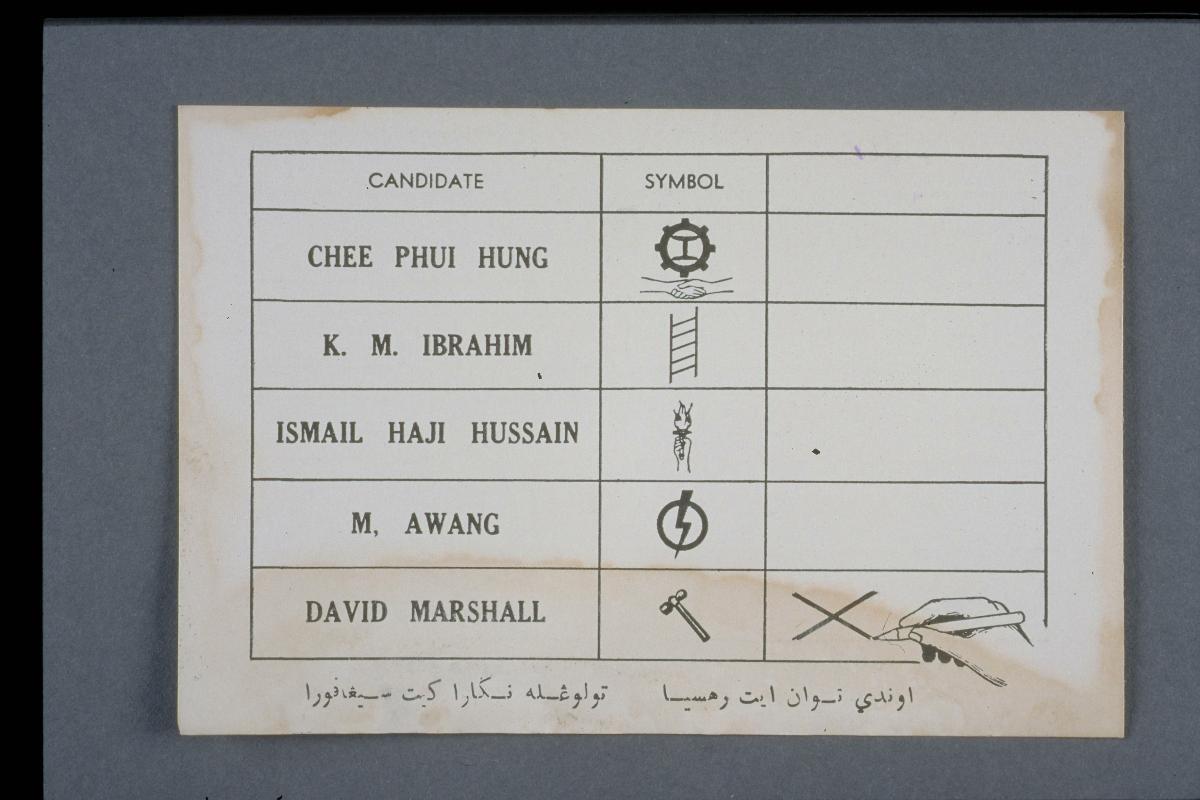 CANDIDATE SYMBOL
CHEE PHUI HUNG
K. M. IBRAHIM
ISMAIL HAJI HUSSAIN
M, AWANG
DAVID MARSHALL
اوندي توان ايت رهسيا تولوڠله نݢارا كيت سيڠافورا